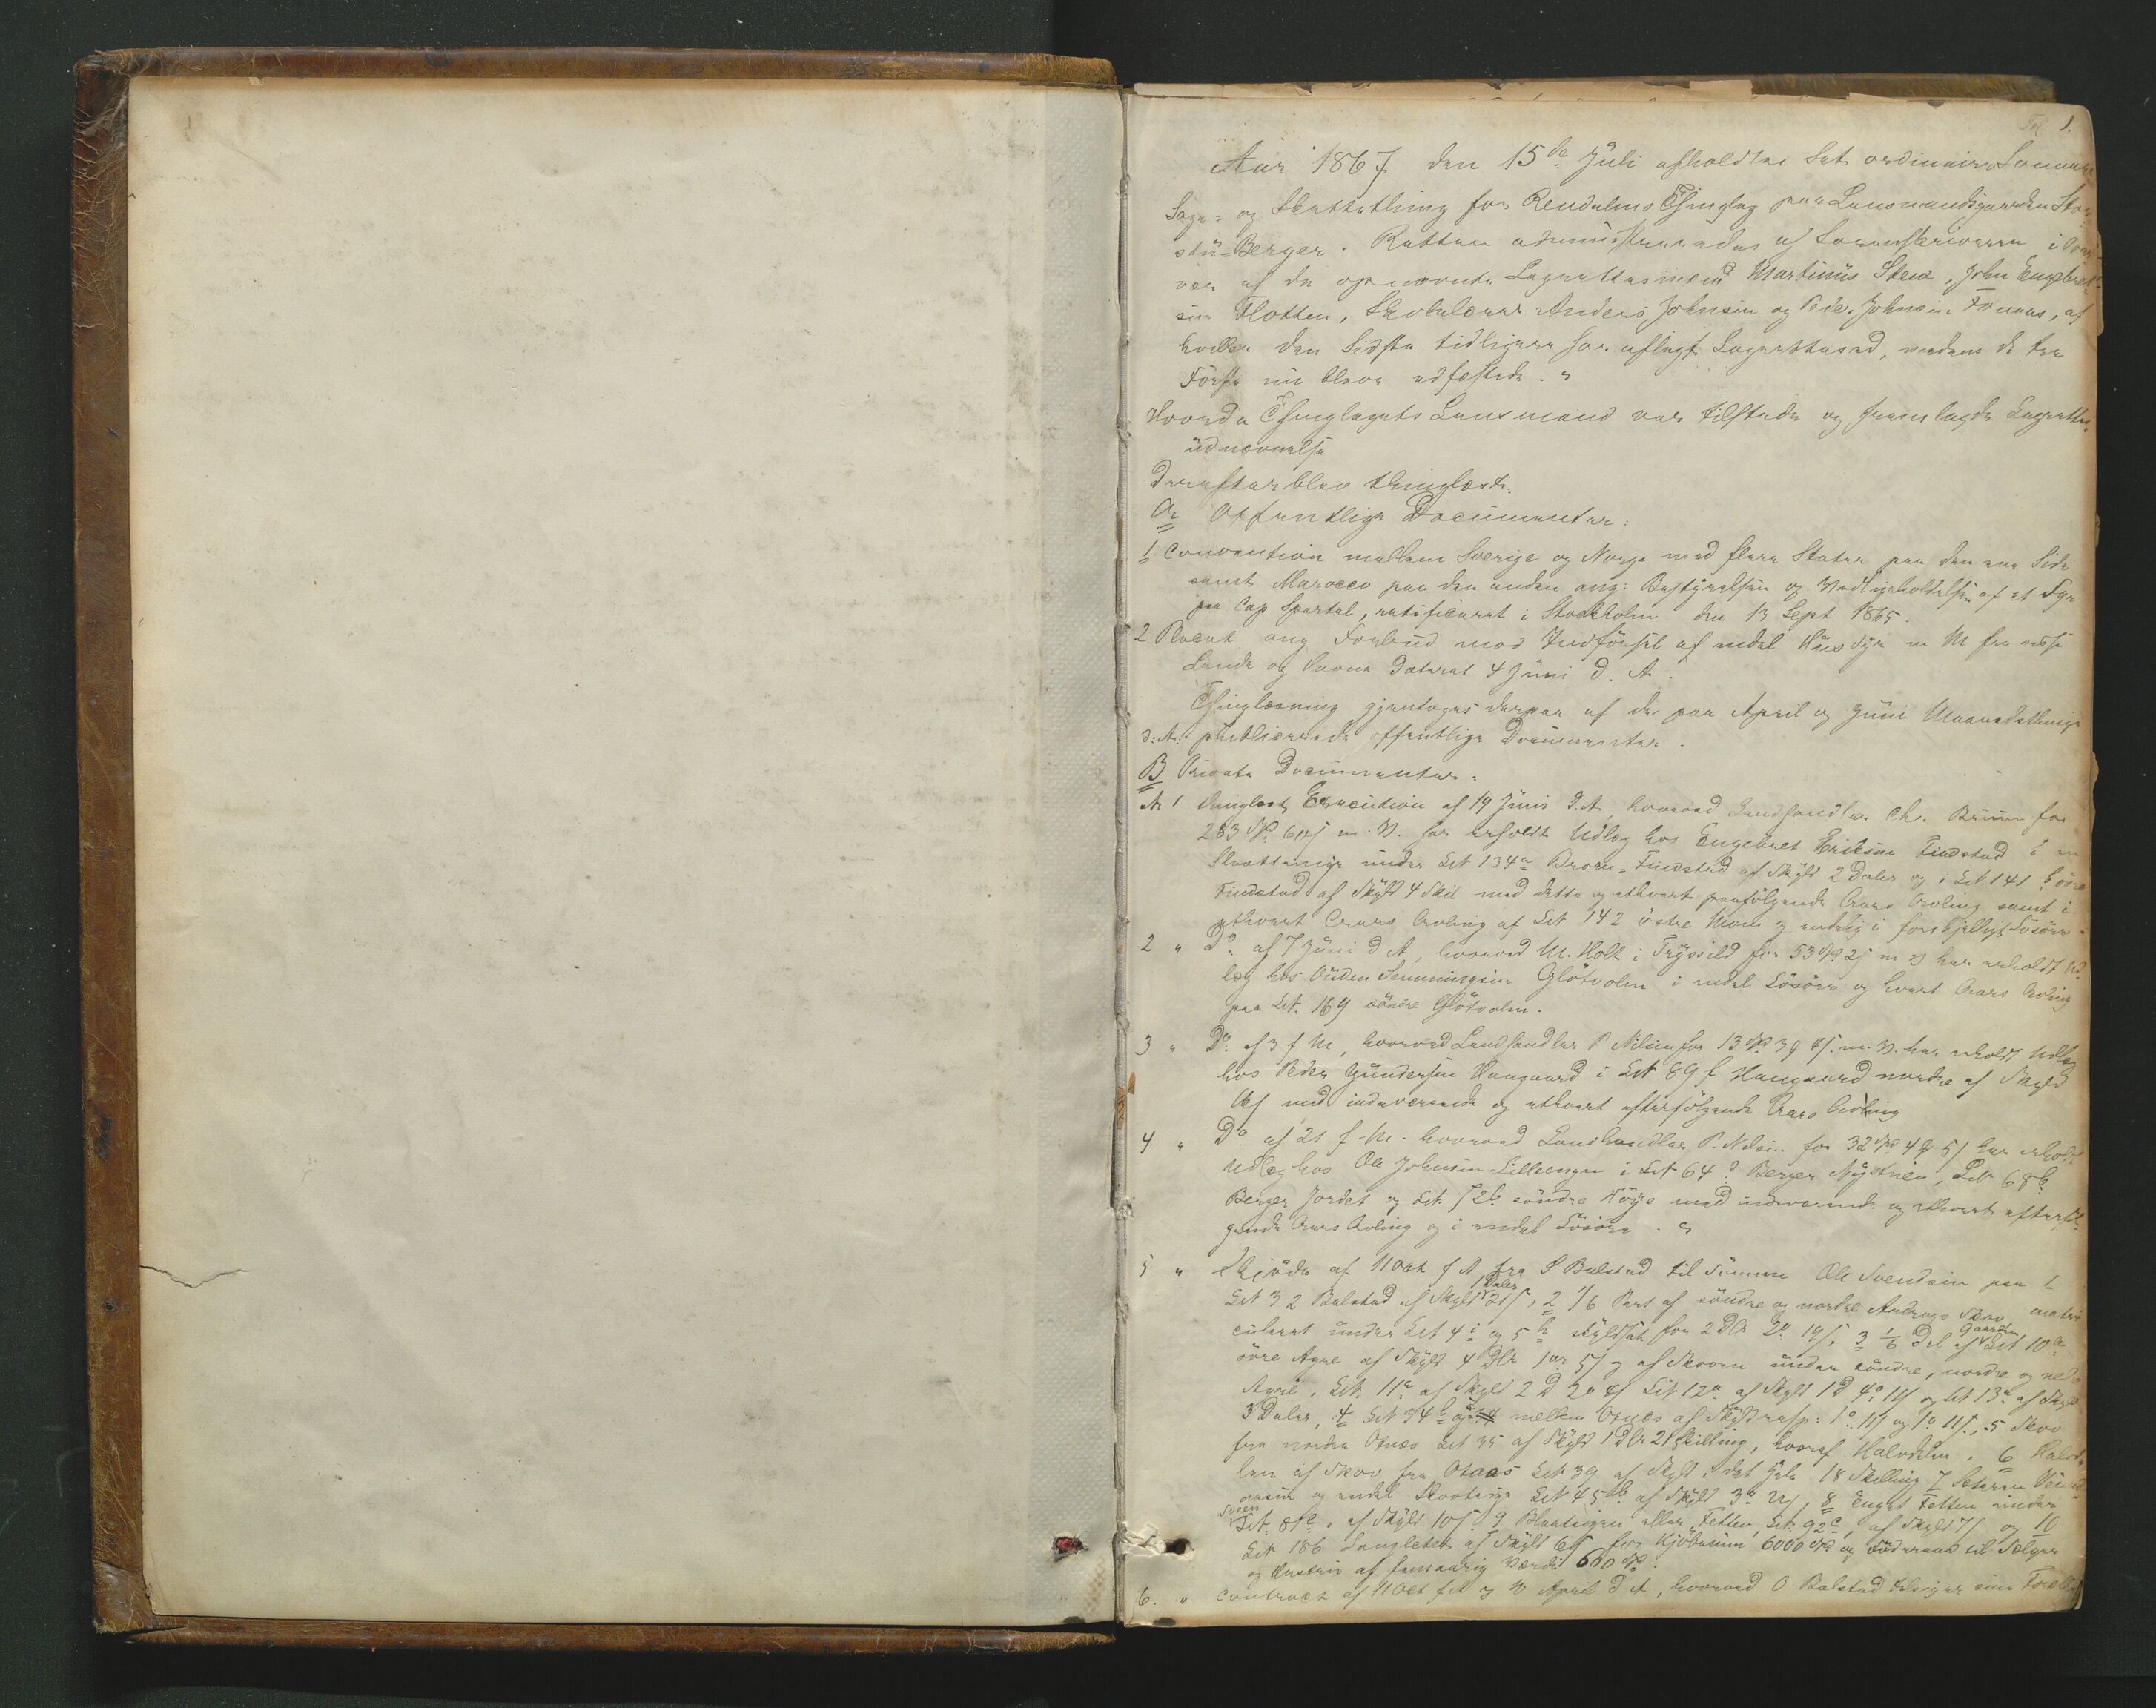 Fol 1.
Aar 1867 den 15de Juli afholdtes Det ordinaire Sommer
Sage- og Skattething for Rendalens Thinglag paa Lensmandsgaarden Stor
stu-Berger. Retten administreredes af Sorenskriveren i Over-
vær af de opnævnte Lagrettesmænd Martinus Steie, John Engebret-
sen Flotten, Skolelærer Anders Johnsen og Peder Johnsen Fonnaas, af
hvilke den Sidste tidligere har aflagt Lagretteseed, medens de tre
Første nu bleve edfæstede.
Hvorda Thinglagets Lensmand var tilstede og fremlagde Lagrettes
udnævnelse
Derefter blev thinglæst:
A. Offentlige Documenter:
1 Convention mellem Sverige og Norge med flere Stater paa den ene Side
samt Marocco paa den anden ang: Bestyrelsen og Vedligeholdelsen af et Fyr
paa Cap Spartel, ratificeret i Stockholm den 13 Sept 1865.
2 Placat ang Forbud mod Indførsel af endel Huusdyr m M fra visse
Lande og Havne Dateret 4 Juni d. A.
Thinglæsning gjentoges derpaa af de paa April og Juni Maanedsthinge
d: A: publicerede offentlige Documenter.
B Private Documenter.
No 1 Thinglæst Execution af 19 Juni d. A, hvorved Landhandler Chr. Bruun for
283 Spd 60 s m. V. har erholdt Udlæg hos Engebret Eriksen Findstad i en
Slaatteeng under Lit 134a Broen-Findstad af Skyld 2 Daler og i Lit 141 b øvre
Findstad af Skyld 4 Skil med dette og ethvert paafølgende Aars Avling samt i
ethvert Aars Avling af Lit 142 østre Moen og endelig i forskjelligt Løsøre
2 " Do af 7 Juni d A, hvorved M. Holt i Trysild for 53 Spd 2 s m V har erholdt Ud-
læg hos Ouden Simmingsen Gløtvolen i endel Løsøre og hvert Aars Avling
paa Lit. 169 søndre Gløtvolen.
3 " Do. af 3 f M, hvorved Landhandler P Nilsen for 13 Spd 3 s m. V. har erholdt Udlæg
hos Peder Gundersen Haugaard i Lit 89 f Haugaard nordre af Skyld
med indeværende og ethvert efterfølgende Aars Avling
4 " Do. af 21 f. M. hvorved Landhandler P. Nilsen for 32 Spd 4 5 s har erholdt
Udlæg hos Ole Johnsen Lilleengen i Lit 64 d Berger Nystuen, Lit 68 b
Berger Jordet og Lit. 72 b søndre Høye med indeværende og ethvert efterføl-
gende Aars Avling og i endel Løsøre.
5 " Skjøde af 11 Oct f A fra S Balstad til Sønnen Ole Svendsen paa 1
Lit 32 Balstad af Skyld 1 Daler 21 s, 2 1/6 Part af søndre og nordre Skov matri
culeret under Lit 4 i og 5 h skyldsat for 2 Dlr 19 s, 3 1/6 Del af Gaarden Lit 10 a
øvre Agre af Skyld 4 Dlr 1 ort 5 s og af Skoven under søndre, nordre og nedre
Agre, Lit. 11 a af Skyld 2 D 2 o 4 s Lit 12 a af Skyld 1 D 4 o 11 s og Lit 13 a af Skyld
3 Daler, 4 Lit 34 b mellem Otnes af Skyld resp: 1 o 11 s og 1 o 11 s, 5 Skov
fra nordre Otnes Lit 35 af Skyld 1 Dlr 21 Skilling, hvoraf Halvdelen, 6 Halvde
len af Skov fra Otnes Lit 39 af Skyld i det Hele 18 Skilling 7 Sæteren
og endel Lit 45 b af Skyld 3 o, 8 Enget Fetten under
Lit. 81 c. af Skyld 10 s. 9 Slaateigen eller Fetten, Lit. 92 c, af Skyld 7 s og 10
Lit 186 Langleten af Skyld 6 s for Kjøbesum 6000 Spd og Føderaad til Sælger
og Hustru af femaarig Værdi 600 Spd.
6. " Contract af 11 Oct f A og April d A, hvorved O Balstad